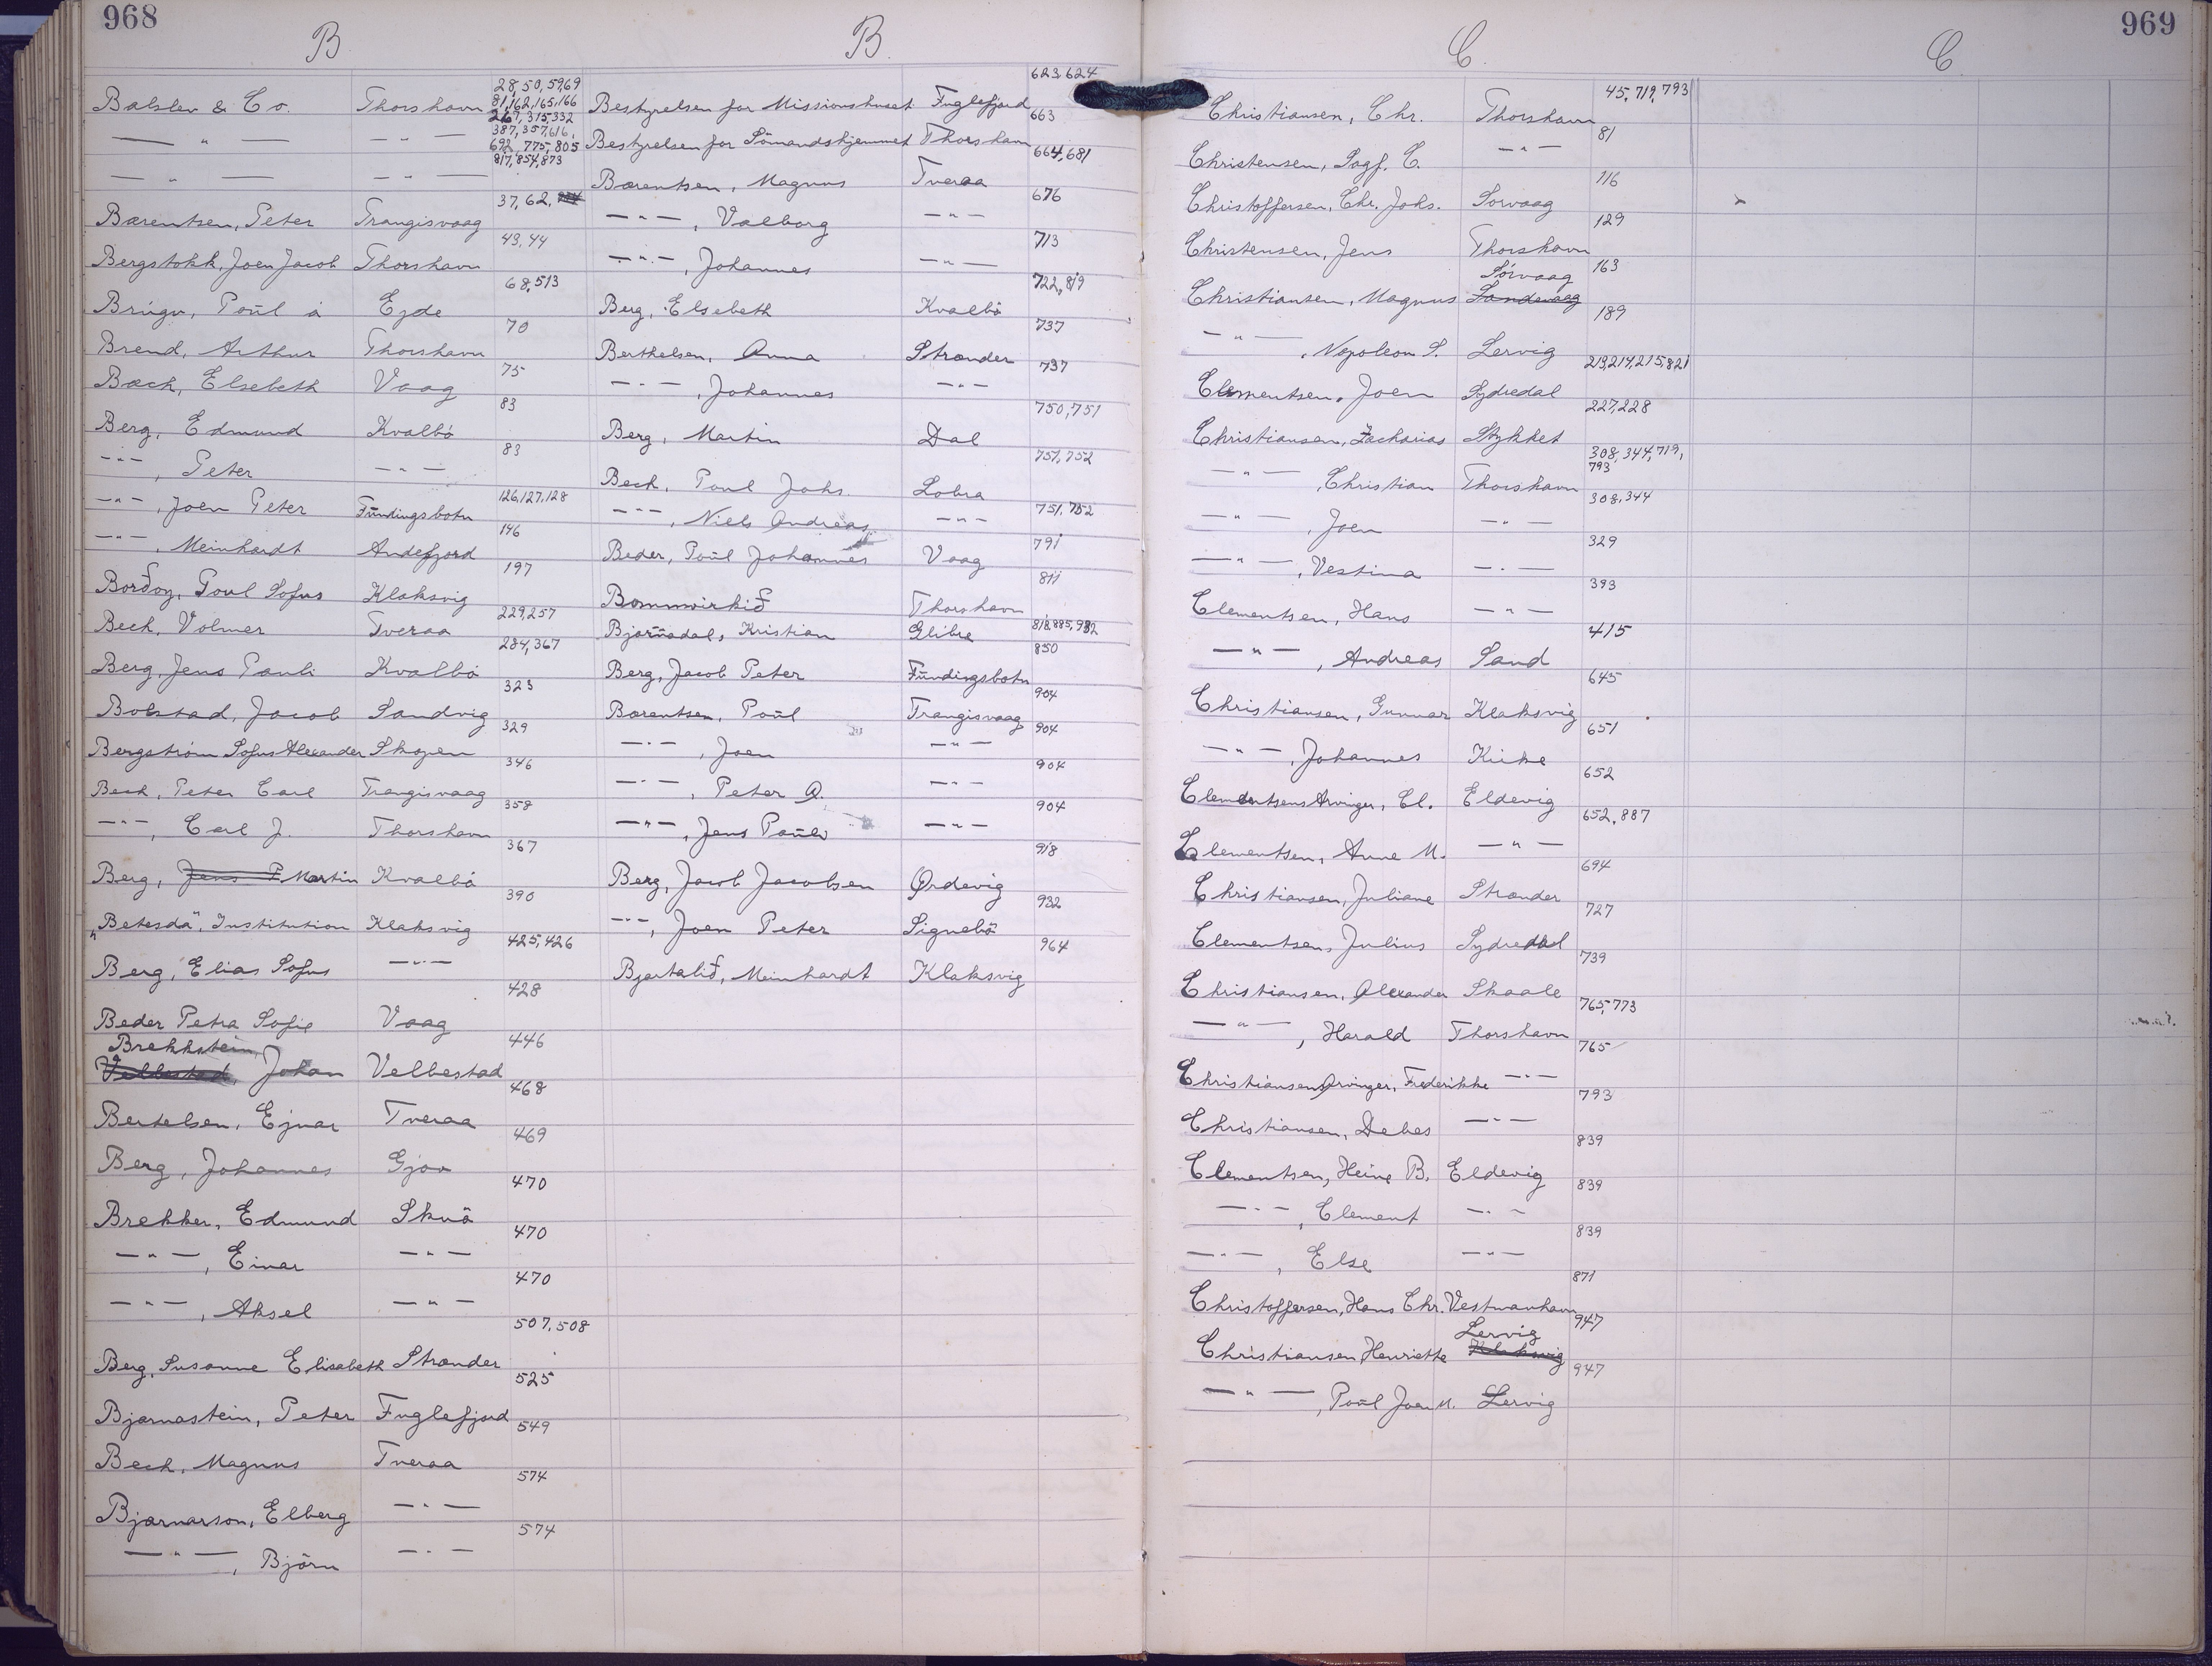 968
B
Balslev & Co. Thorshavn 28,50,59,69
81,162,165,166
267,315,332
— " — - " — 387,357,616,
692,775,805
817,854,873
— " — - " —
Bærentsen, Peter Trangisvaag 37,62,
Bergstokk, Joen Jacob Thorshavn 43,44
Brúgv, Poul á Ejde 68,513
Brend, Arthur Thorshavn 70
Bæch, Elsebeth Vaag 75
Berg, Edmund Kvalbö 83
- " -, Peter - " - 83
- " -, Joen Peter Fundingsbotn 126,127,128
- " -, Meinhardt Andefjord 146
Borðoy, Poul Sofus Klaksvig 197
Bech, Volmer Tveraa 229,257
Berg, Jens Pauli Kvalbö 284,367
Bolstad, Jacob Sandvig 323
Bergström Sofus Alexander Skopen 329
Bech, Peter Carl Trangisvaag 346
- " -, Carl J. Thorshavn 358
Berg, Jens P. Martin Kvalbö 367
"Betesda", Institution Klaksvig 390
Berg, Elias Sofus - " - 425,426
Beder Petra Sofie Vaag 428
Brekkstein,
Velbestad, Johan Velbestad 446
Bertelsen, Ejnar Tveraa 468
Berg, Johannes Gjov 469
Brekker, Edmund Skuö 470
- " -, Einar - " - 470
- " -, Aksel - " - 470
Berg, Susanne Elisabeth Strænder 507,508
Bjarnastein, Peter Fuglefjord 525
Bech, Magnus Tveraa 549
Bjarnarson, Elberg - " - 574
- " -, Björn - " - 574
B
Bestyrelsen for Missionshuset Fuglefjord 623,624
Bestyrelsen for Sömandshjemmet Thorshavn 663
Bærentsen, Magnus Tveraa 664,681
- " -, Valborg - " - 676
- " -, Johannes - " - 713
Berg, Elsebeth Kvalbö 722,819
Berthelsen, Anna Strænder 737
- " -, Johannes - " - 737
Berg, Martin Dal 750,751
Bech, Poul Johs. Lobra 751,752
- " -, Niels Andreas - " - 751,752
Beder, Poul Johannes Vaag 791
Bommvirkið Thorshavn 811
Bjarnadal, Kristian Glibre 818,885,932
Berg, Jacob Peter Fundingsbotn 850
Bærentsen, Poul Trangisvaag 904
- " -, Joen - " - 904
- " -, Peter A. - " - 904
- " -, Jens Pauli - " - 904
Berg, Jacob Jacobsen Ørdevig 918
- " -, Joen Peter Signabö 932
Bjartalið, Meinhardt Klaksvig 964
969
C.
Christiansen, Chr. Thorshavn 45,719,793
Christensen, Sagf. C. - " - 81
Christoffersen, Chr. Johs. Sorvaag 116
Christensen, Jens Thorshavn 129
Sörvaag
Christiansen, Magnus Sandevaag 163
- " -, Napoleon S. Lervig 189
Clementsen, Joen Sydredal 213,214,215,821
Christiansen, Zacharias Stykket 227,228
- " -, Christian Thorshavn 308,344,719,
793
- " -, Joen - " - 308,344
- " -, Vestina - " - 329
Clementsen, Hans - " - 393
- " -, Andreas Sand 415
Christiansen, Gunnar Klaksvig 645
- " -, Johannes Kirke 651
Clementsens Arvinger, Cl. Eldevig 652
Clementsen, Anne M. - " - 652,887
Christiansen, Juliane Strænder 694
Clementsen, Julius Sydredal 727
Christiansen, Alexander Skaale 739
- " -, Harald Thorshavn 765,773
Christiansens Arvinger, Frederikke - " - 765
Christiansen, Debes - " - 793
Clementsen, Heine B. Eldevig 839
- " -, Clement - " - 839
- " -, Else - " - 839
Christoffersen, Hans Chr. Vestmanhavn 871
Lervig
Christiansen, Henriette Klaksvig 947
- " -, Poul Joen M. Lervig 947
C.